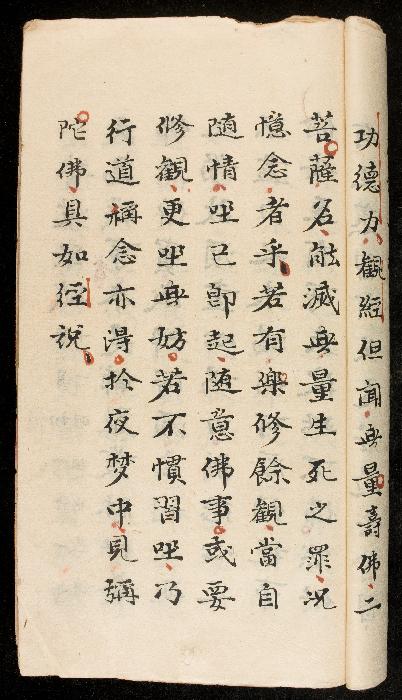 功德力觀經但聞無量壽佛二
菩薩名能滅無量生死之罪況
憶念者乎若有樂修餘觀當自
隨情坐已即起随意佛事或要
修觀更坐無妨若不慣習坐乃
行道稱念亦得扵夜梦中見彌
陀佛具如経説